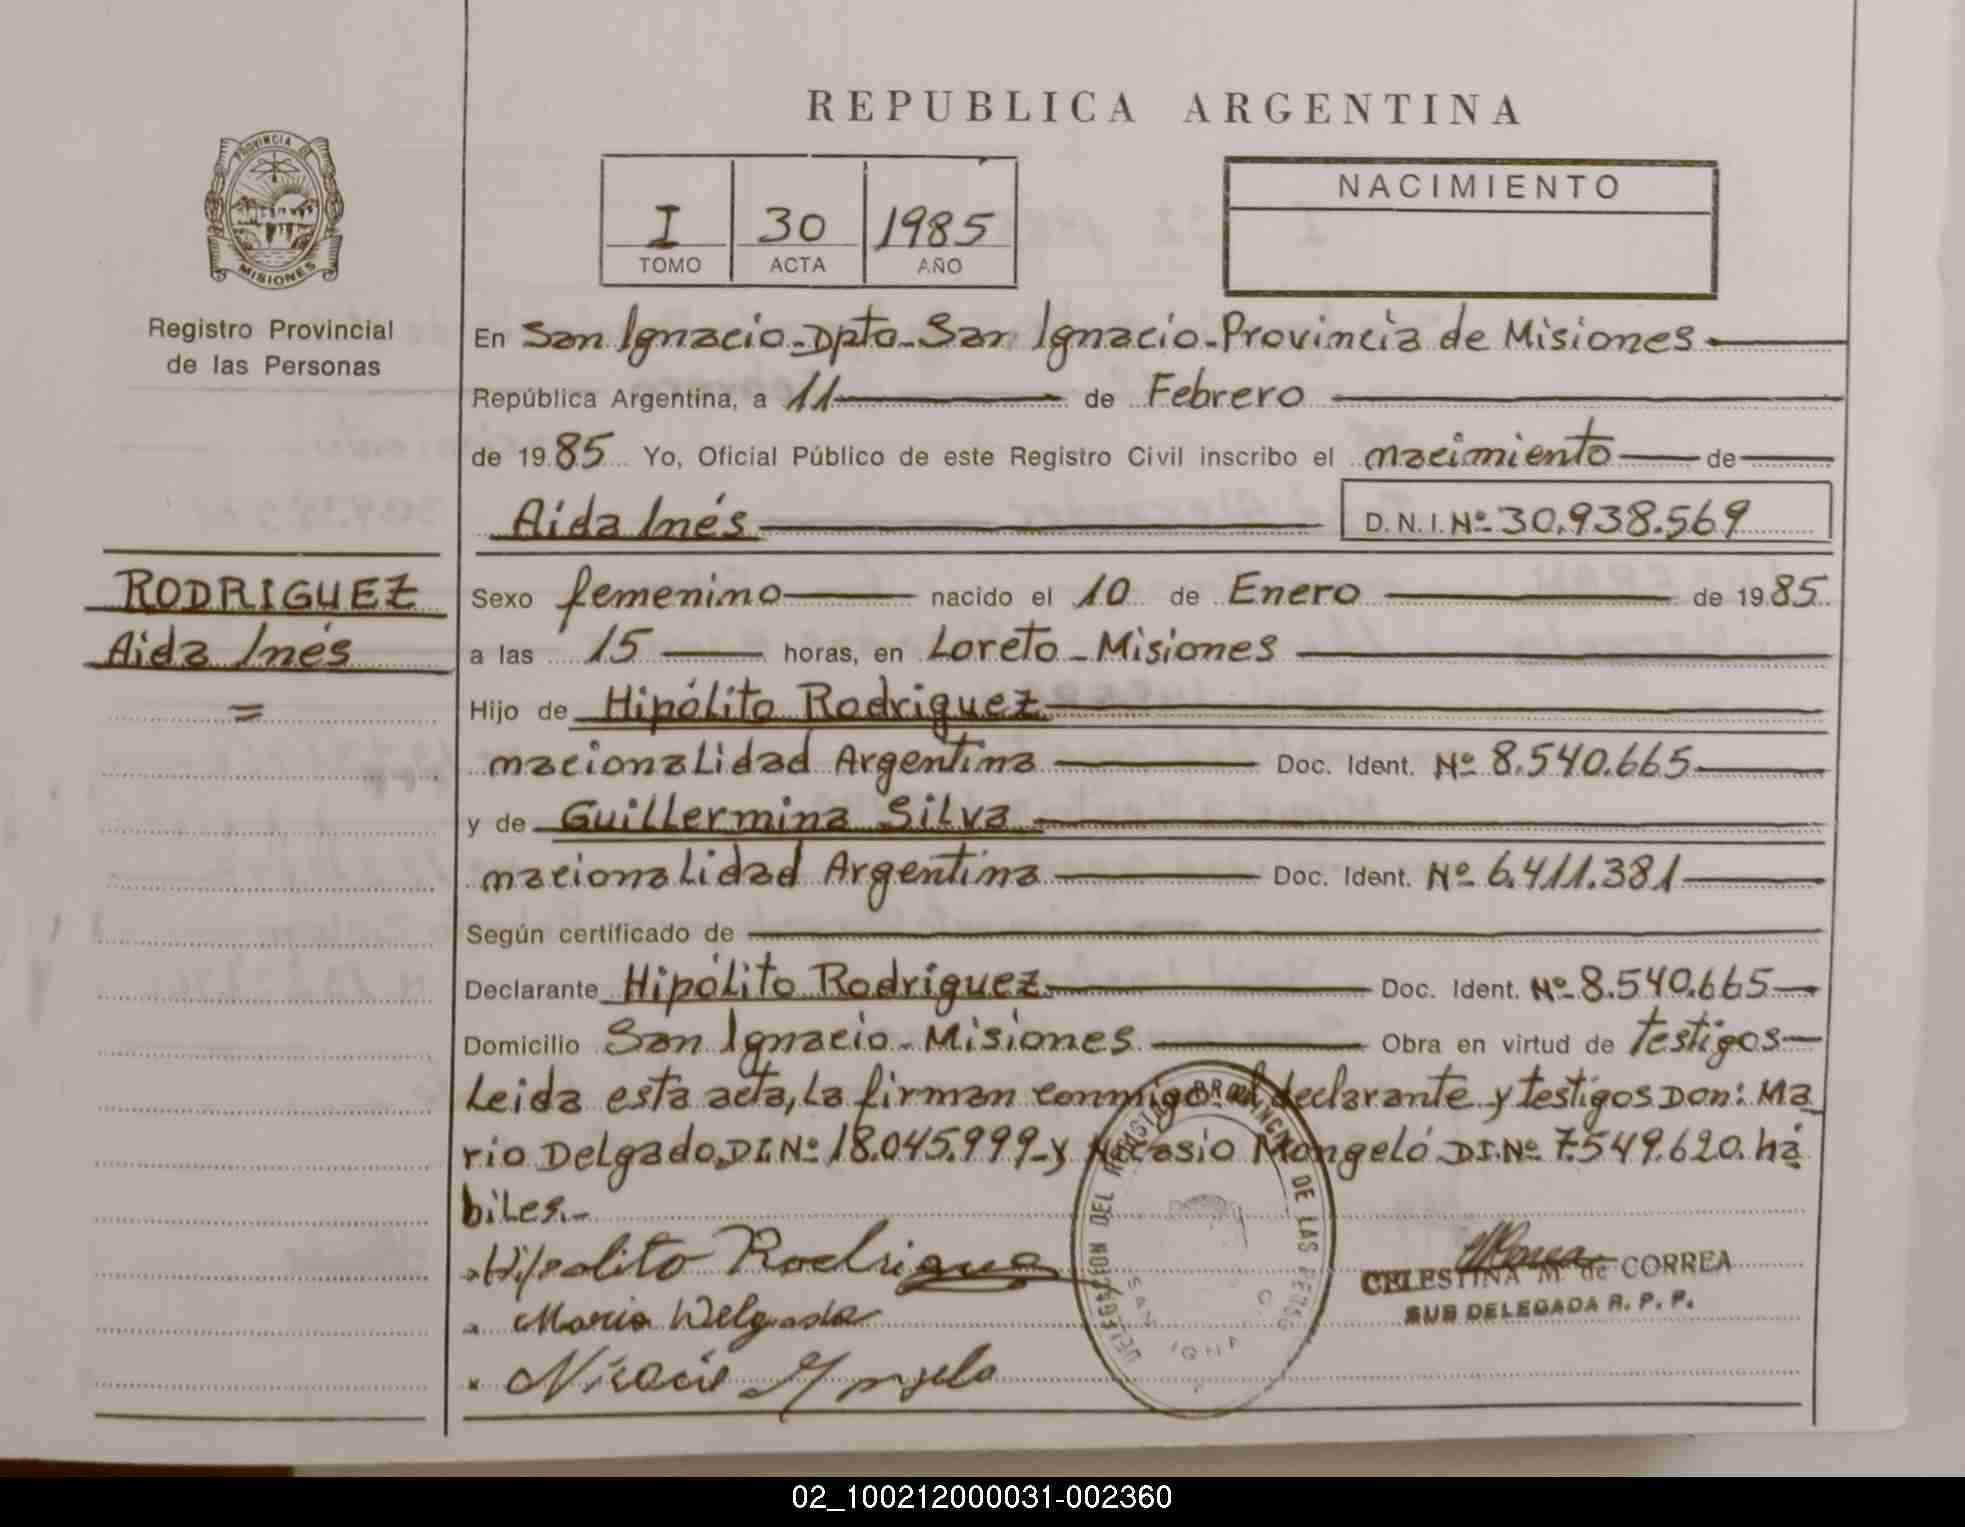 REPUBLICA ARGENTINA
PROVINCIA DE
MISIONES
Registro Provincial
de las Personas
I 30 1985
TOMO ACTA AÑO
NACIMIENTO
En San Ignacio-Dpto-San Ignacio-Provincia de Misiones
República Argentina, a 11 de Febrero
de 1985 Yo, Oficial Público de este Registro Civil inscribo el nacimiento de
Aida Inés D.N.I. Nº 30.938.569
RODRIGUEZ
Aida Inés
=
Sexo femenino nacido el 10 de Enero de 1985
a las 15 horas, en Loreto - Misiones
Hijo de Hipólito Rodriguez
nacionalidad Argentina Doc. Ident. Nº 8.540.665
y de Guillermina Silva
nacionalidad Argentina Doc. Ident. Nº 6.411.381
Según certificado de
Declarante Hipólito Rodriguez Doc. Ident. Nº 8.540.665
Domicilio San Ignacio - Misiones Obra en virtud de testigos
Leida esta acta, la firman conmigo el declarante y testigos Don: Ma
rio Delgado, DI. Nº 18.045.999 - y Nicasio Mongeló DI. Nº 7.549.620. há
biles.-
Hipolito Rodriguez
Mario Delgado
DELEGACION DEL REGISTRO PROVINCIAL DE LAS PERSO
SAN IGNA
CELESTINA M. de CORREA
SUB DELEGADA R. P. P.
02_100212000031-002360